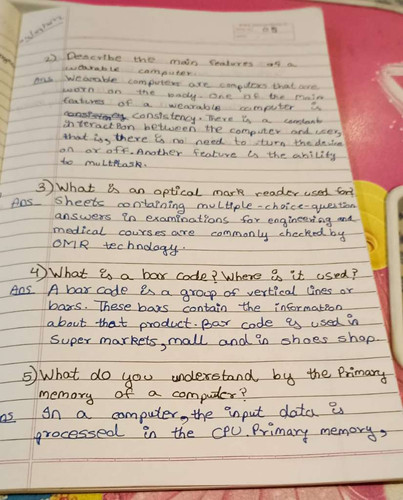 2) Describe the main features of a
wearable computer.
Ans Wearable computers are computers that are
worn on the body. One of the main
features of a wearable computer is
consistency. There is a constant
interaction between the computer and user,
that is, there is no need to turn the device
on or off. Another feature is the ability
to multitask.
3) What is an optical mark reader used for?
Ans Sheets containing multiple-choice-question
answers in examinations for engineering and
medical courses are commonly checked by
OMR technology.
4) What is a bar code? Where is it used?
Ans A bar code is a group of vertical lines or
bars. These bars contain the information
about that product. Bar code is used in
Super markets, mall and in shoes shop.
5) What do you understand by the Primary
memory of a computer?
ns In a computer, the input data is
processed in the CPU. Primary memory,